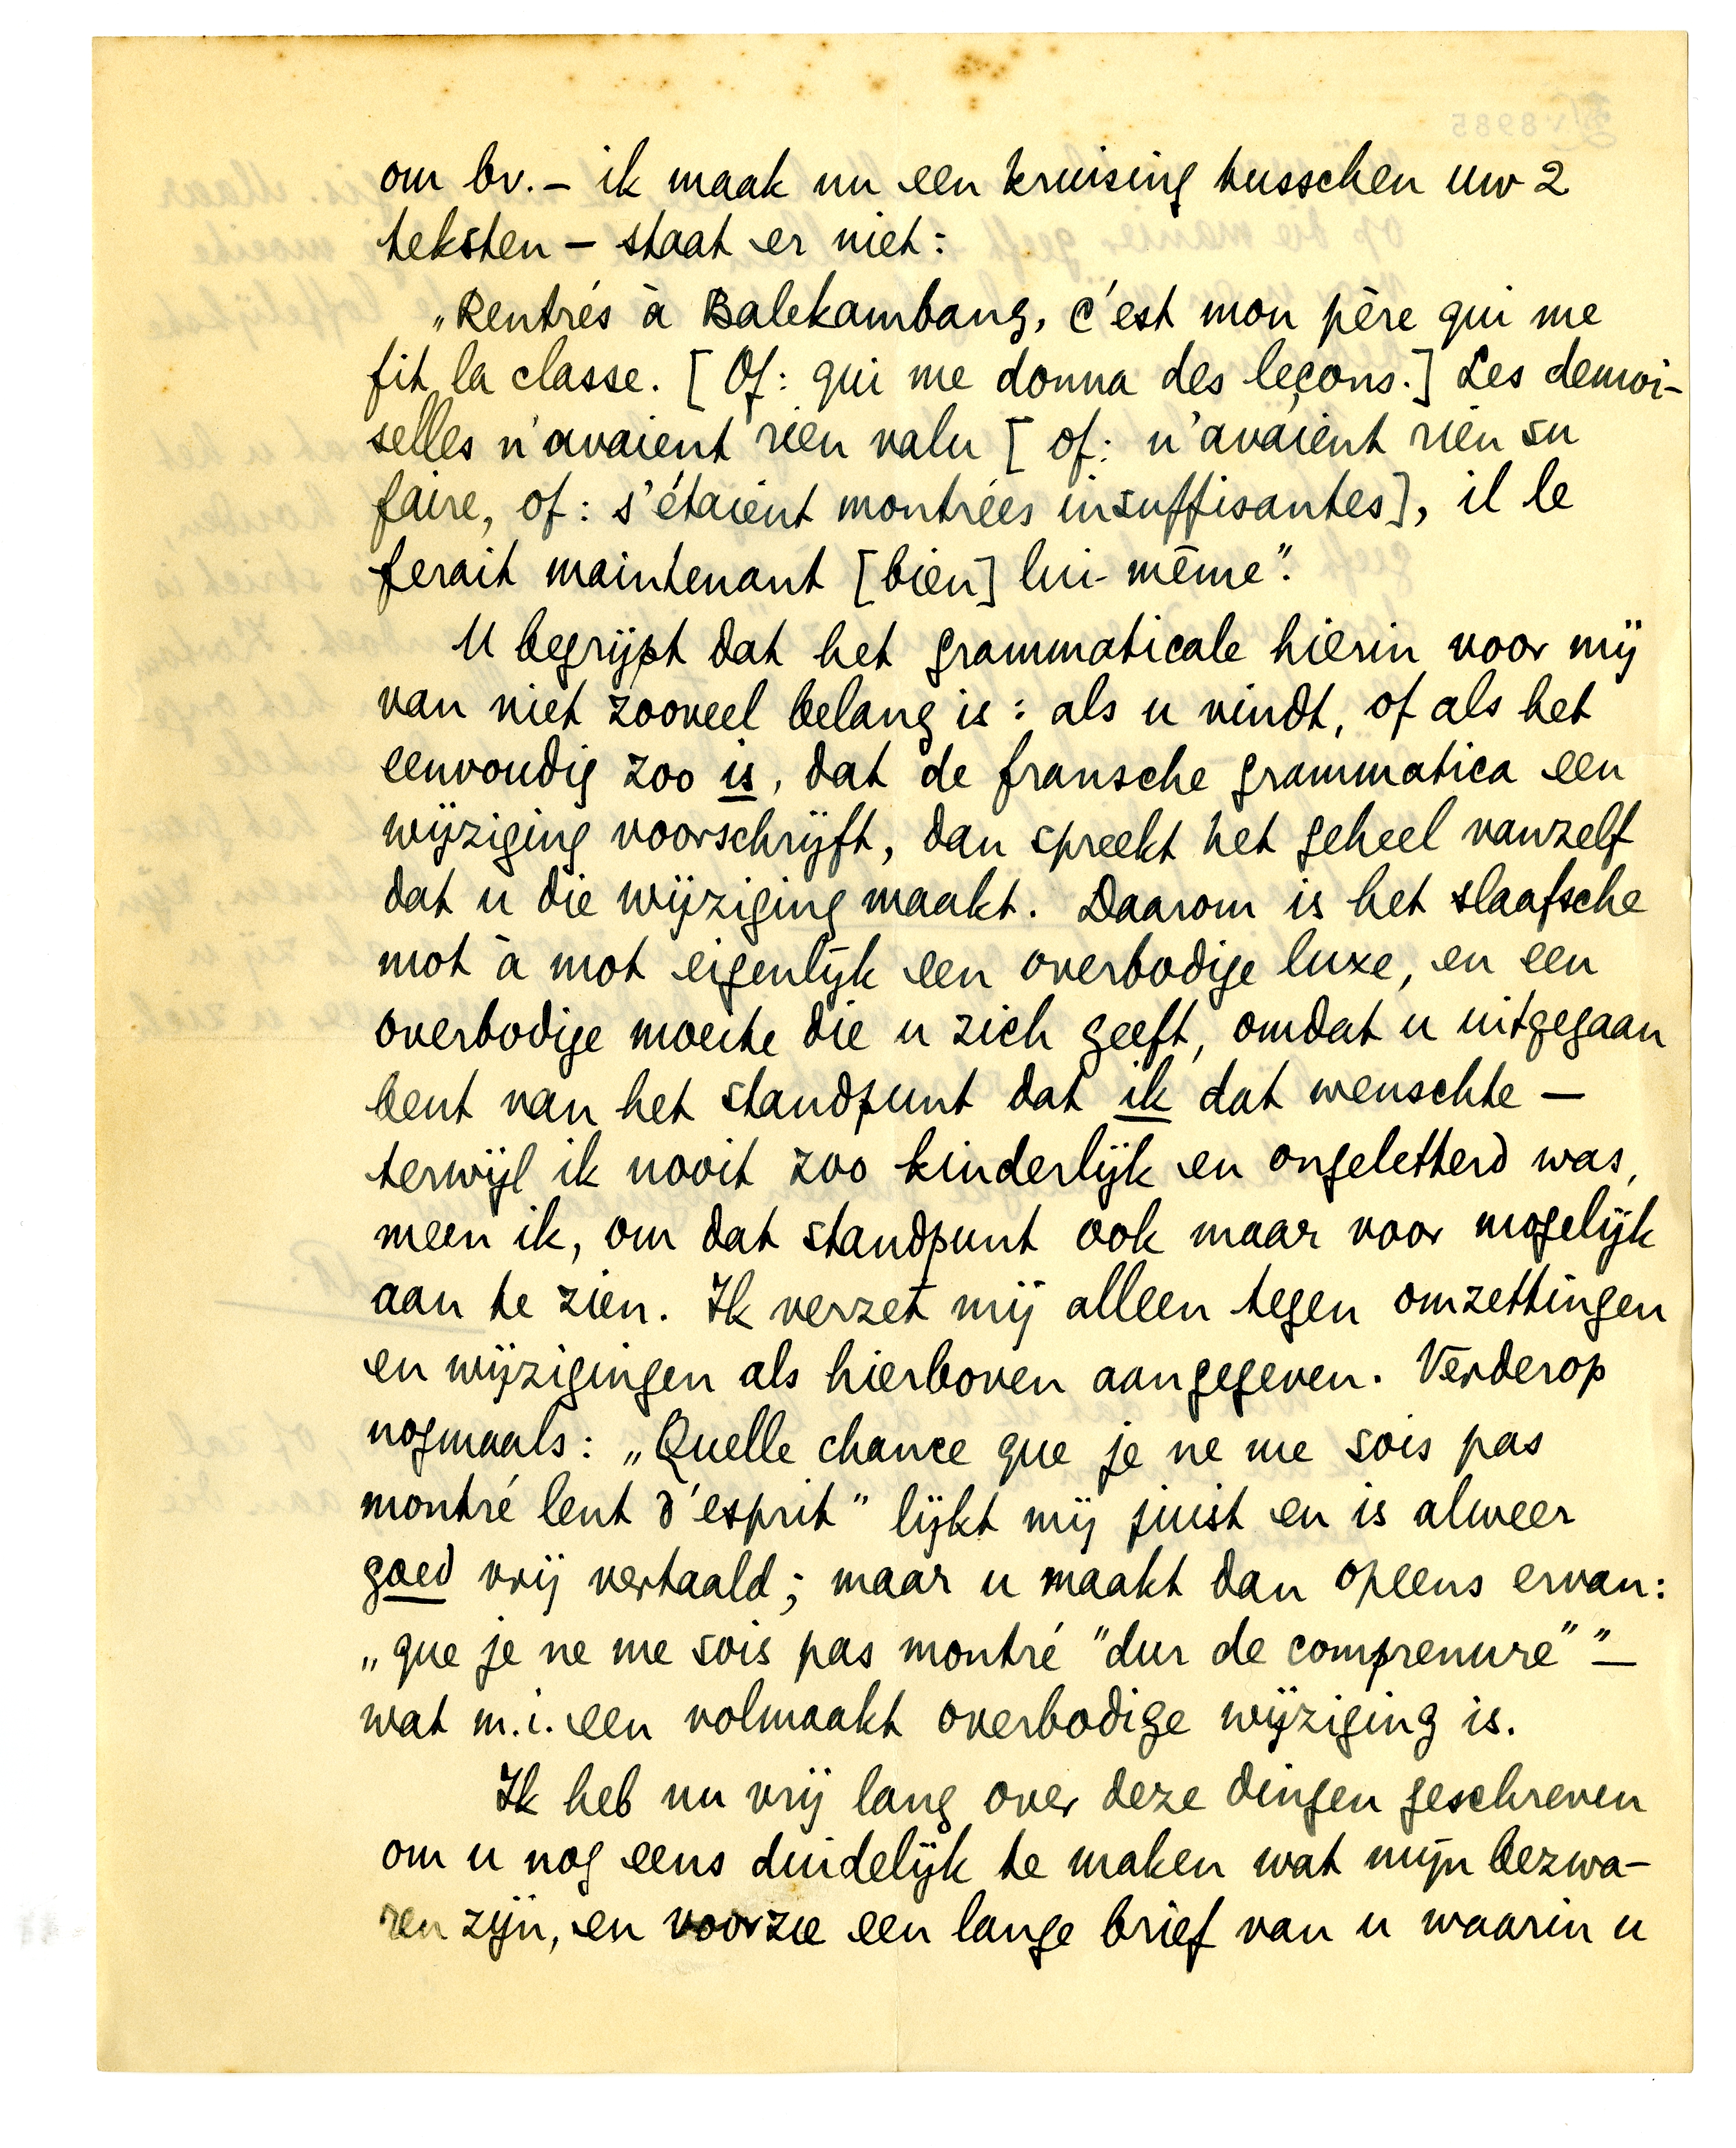 om bv. – ik maak nu een kruising tusschen uw 2
teksten – staat er niet:
„Rentrés à Balekambang, c'est mon père qui me
fit la classe. [Of: qui me donna des leçons.] Les demoi-
selles n'avaient rien valu [of: n'avaient rien su
faire, of: s'étaient montrées insuffisantes], il le
ferait maintenant [bien] lui-même".
U begrijpt dat het grammaticale hierin voor mij
van niet zooveel belang is: als u vindt, of als het
eenvoudig zoo is, dat de fransche grammatica een
wijziging voorschrijft, dan spreekt het geheel vanzelf
dat u die wijziging maakt. Daarom is het slaafsche
mot à mot eigenlijk een overbodige luxe, en een
overbodige moeite die u zich geeft, omdat u uitgegaan
bent van het standpunt dat ik dat wenschte –
terwijl ik nooit zoo kinderlijk en ongeletterd was,
meen ik, om dat standpunt ook maar voor mogelijk
aan te zien. Ik verzet mij alleen tegen omzettingen
en wijzigingen als hierboven aangegeven. Verderop
nogmaals: „Quelle chance que je ne me sois pas
montré lent d'esprit" lijkt mij juist en is alweer
goed vrij vertaald; maar u maakt dan opeens ervan:
„que je ne me sois pas montré "dur de comprenure"" –
wat m.i. een volmaakt overbodige wijziging is.
Ik heb nu vrij lang over deze dingen geschreven
om u nog eens duidelijk te maken wat mijn bezwa-
ren zijn, en voorzie een lange brief van u waarin u